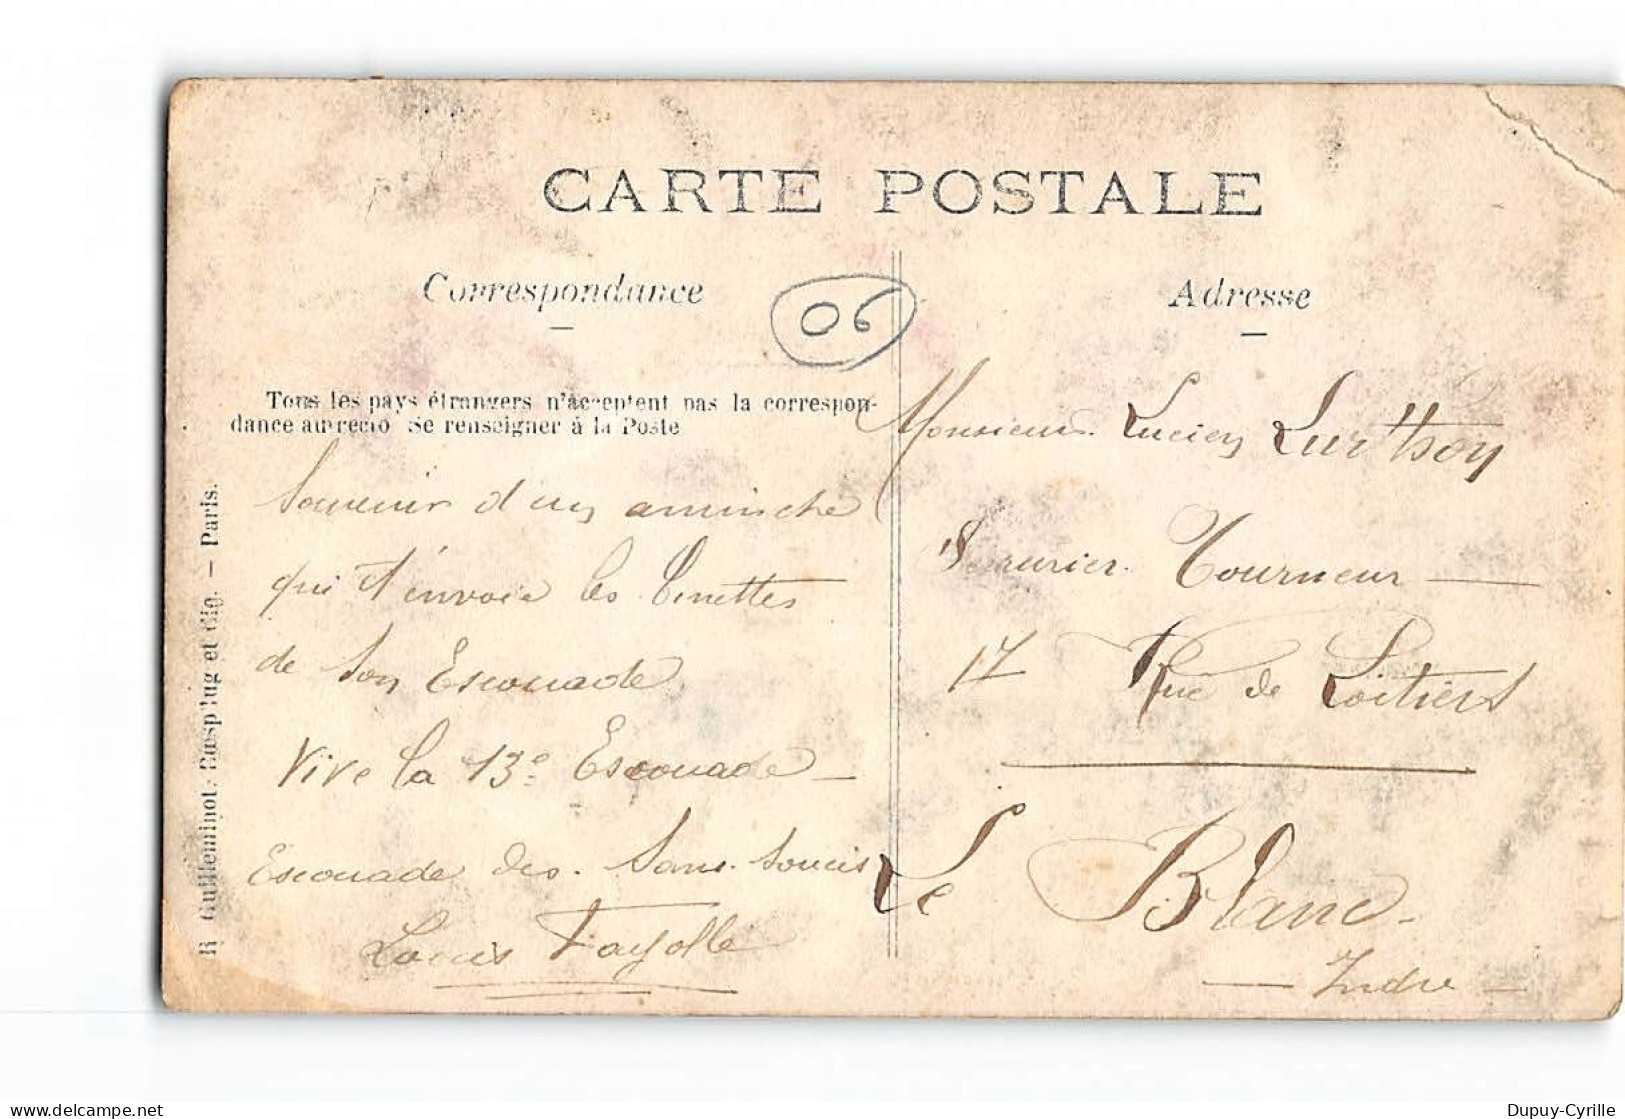 CARTE POSTALE
Correspondance
Adresse
06
Tous les pays étrangers n'acceptent pas la correspon-
dance au recto Se renseigner à la Poste
Souvenir d'un aminche
qui t'envoie les Binettes
de son Escouade
Vive la 13e Escouade
Escouade des Sans-Soucis
Louis Fayolle
Monsieur Lucien Lurthon
Serrurier Tourneur
17 Rue de Poitiers
Le Blanc
Indre
R Guilleminot, Bœspflug et Cie. — Paris.
delcampe.net
Dupuy-Cyrille